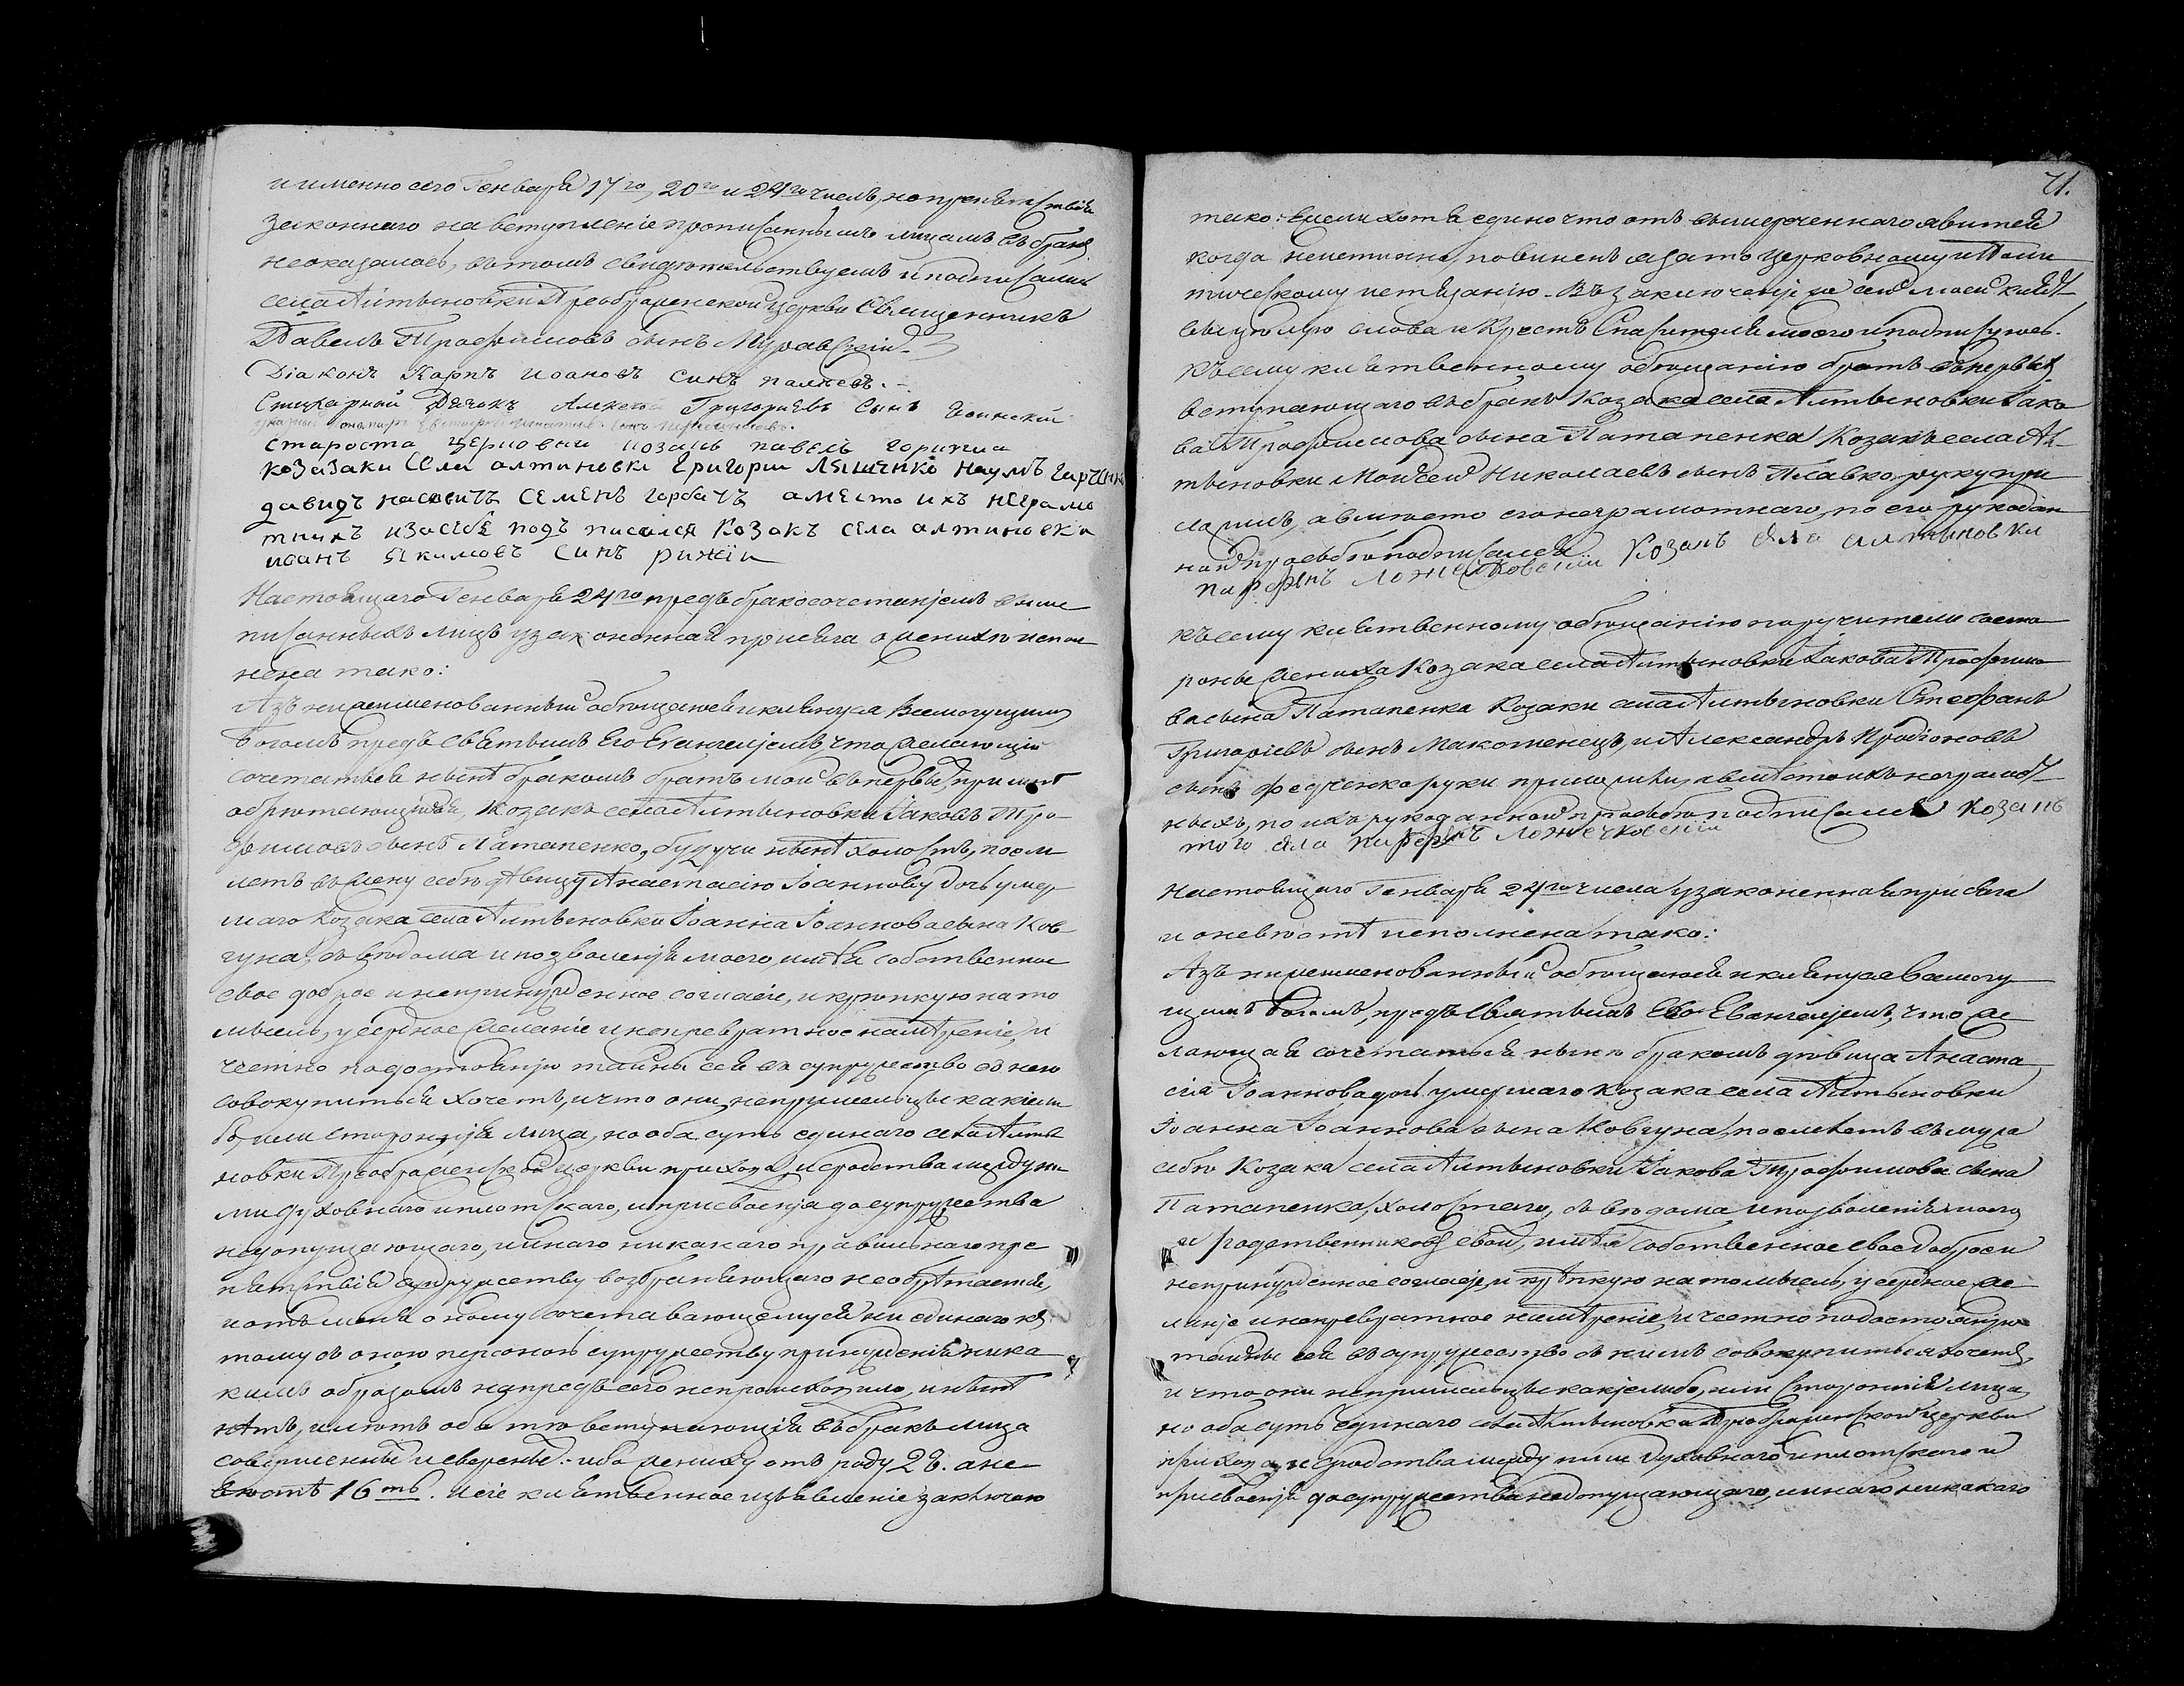 и именно сего Генваря 17го, 20го и 24го числъ, но препятствія
законнаго на вступленіе прописаннымъ лицамъ въ бракъ
неоказалось, въ томъ свидѣтельствуемъ и подписались
села Алтыновки Преображенской церкви Священникъ
Павелъ Трофимовъ сынъ Муравскій
Діаконъ Карпъ Иоановъ синъ
Стихарный Дячокъ Алексей Григориевъ сынъ
староста церковни козакъ павелъ
козазаки села алтиновки григории наумъ
давидъ семенъ горбачъ амѣсто ихъ неграмо
тнихъ изасебе подъ писался козакъ села алтиновки
иванъ якимовъ синъ рижіи
Настоящаго Генваря 24го предъ бракосочетаніемъ выше
писанныхъ лицъ узаконенная присяга о женихѣ испол
нена тако:
Азъ нижеименованный обѣщаюся и кленуся Всемогущимъ
Богомъ предъ Святымъ Его Евангеліемъ, что желающій
сочетаться нынѣ бракомъ братъ мой въ первый
обрѣтающійся, Козакъ села Алтыновки Іаковъ Тро-
фимовъ сынъ Патапенко, будучи нынѣ холостъ, поем
летъ въ жену себѣ дѣвицу Анастасію Іоаннову дочь умер
шаго Козака села Алтыновки Іоанна Іоаннова сына Ков
гуна, съ вѣдома и позволенія моего, имѣя собственное
свое доброе и непринужденное согласіе, и крѣпкую на то
мысль, усердное желаніе и непревратное намѣреніе, и
честно по достоянію тайны сея въ супружество съ нею
совокупиться хочетъ, и что они непришельцы какіелі
бо, или стороннія лица, но оба суть единаго села Алты
новки Преображенской церкви прихода, и сродства между ни
ми духовнаго и плотскаго, и присвоенія до супружества
недопущающаго, и инаго никакаго правильнаго пре
пятствія супружеству возбраняющаго необрѣтается,
и отъ меня оному сочетавающемуся ни единаго къ
тому съ оною персоною супружеству принужденія ника
кимъ образомъ напредъ сего непроисходило, и нынѣ
нѣтъ, и лѣтъ оба тѣ вступающія въ бракъ лица
совершенны и своренны: ибо жениху отъ роду 22. а не
вѣстѣ 16ть. И сіе клятвенное изъявленіе заключаю
71.
тако: Ежели хотя едино что отъ вышереченнаго явится
когда неистинно, повиненъ я дать церковному и Поли
тическому истязанію. Въ заключеніе же сей моей клятвы
цѣлую слова и Крестъ Спасителя моего и подписуюсь.
Къ сему клятвенному обѣщанію братъ въ первый
вступающаго въ бракъ Козака села Алтыновки Іако
ва Трофимова сына Патапенка Козакъ села Ал-
тыновки Моисей Николаевъ сынъ Плавко руку при
ложилъ, а вмѣсто его неграмотнаго, по его рукодан
ной прозьбѣ подписался Козакъ села алтыновки
парфенъ Ложечковский
Къ сему клятвенному обѣщанію поручители состо
роны жениха Козака села Алтыновки Іакова Трофимо
ва сына Патапенка Козаки села Алтыновки Стефанъ
Григоріевъ сынъ Макотенецъ, и Александръ Иродіоновъ
сынъ Федченко руки приложили, а вмѣсто ихъ неграмот
ныхъ, по ихъ рукоданной прозьбѣ подписался Козакъ
того села парфенъ Ложечковский
Настоящаго Генваря 24го числа узаконенная присяга
и о невѣстѣ исполнена тако:
Азъ нижеименованный обѣщаюся и кленуся Всемогу
щимъ Богомъ, предъ Святымъ Его Евангеліемъ, что же
лающая сочетатися нынѣ бракомъ дѣвица Анаста
сія Іоаннова дочь умершаго козака села Алтыновки
Іоанна Іоаннова сына Ковгуна, поемлетъ въ мужа
себѣ Козака села Алтыновки Іакова Трофимова сына
Патапенка, холостаго, съ вѣдома и позволенія моего
и родственниковъ свой, имѣя собственное свое доброе и
непринужденное согласіе, и крѣпкую на то мысль, усердное же
ланіе и непревратное намѣреніе, и честно по достоянію
тайны сея въ супружество съ нимъ совокупиться хочетъ,
и что они непришельцы какіелибо, или Стороннія лица,
но оба суть единаго села Алтыновки Преображенской церкви
прихода, и сродства между ними духовнаго и плотскаго и
присвоенія до супружества недопущающаго, и инаго никакаго